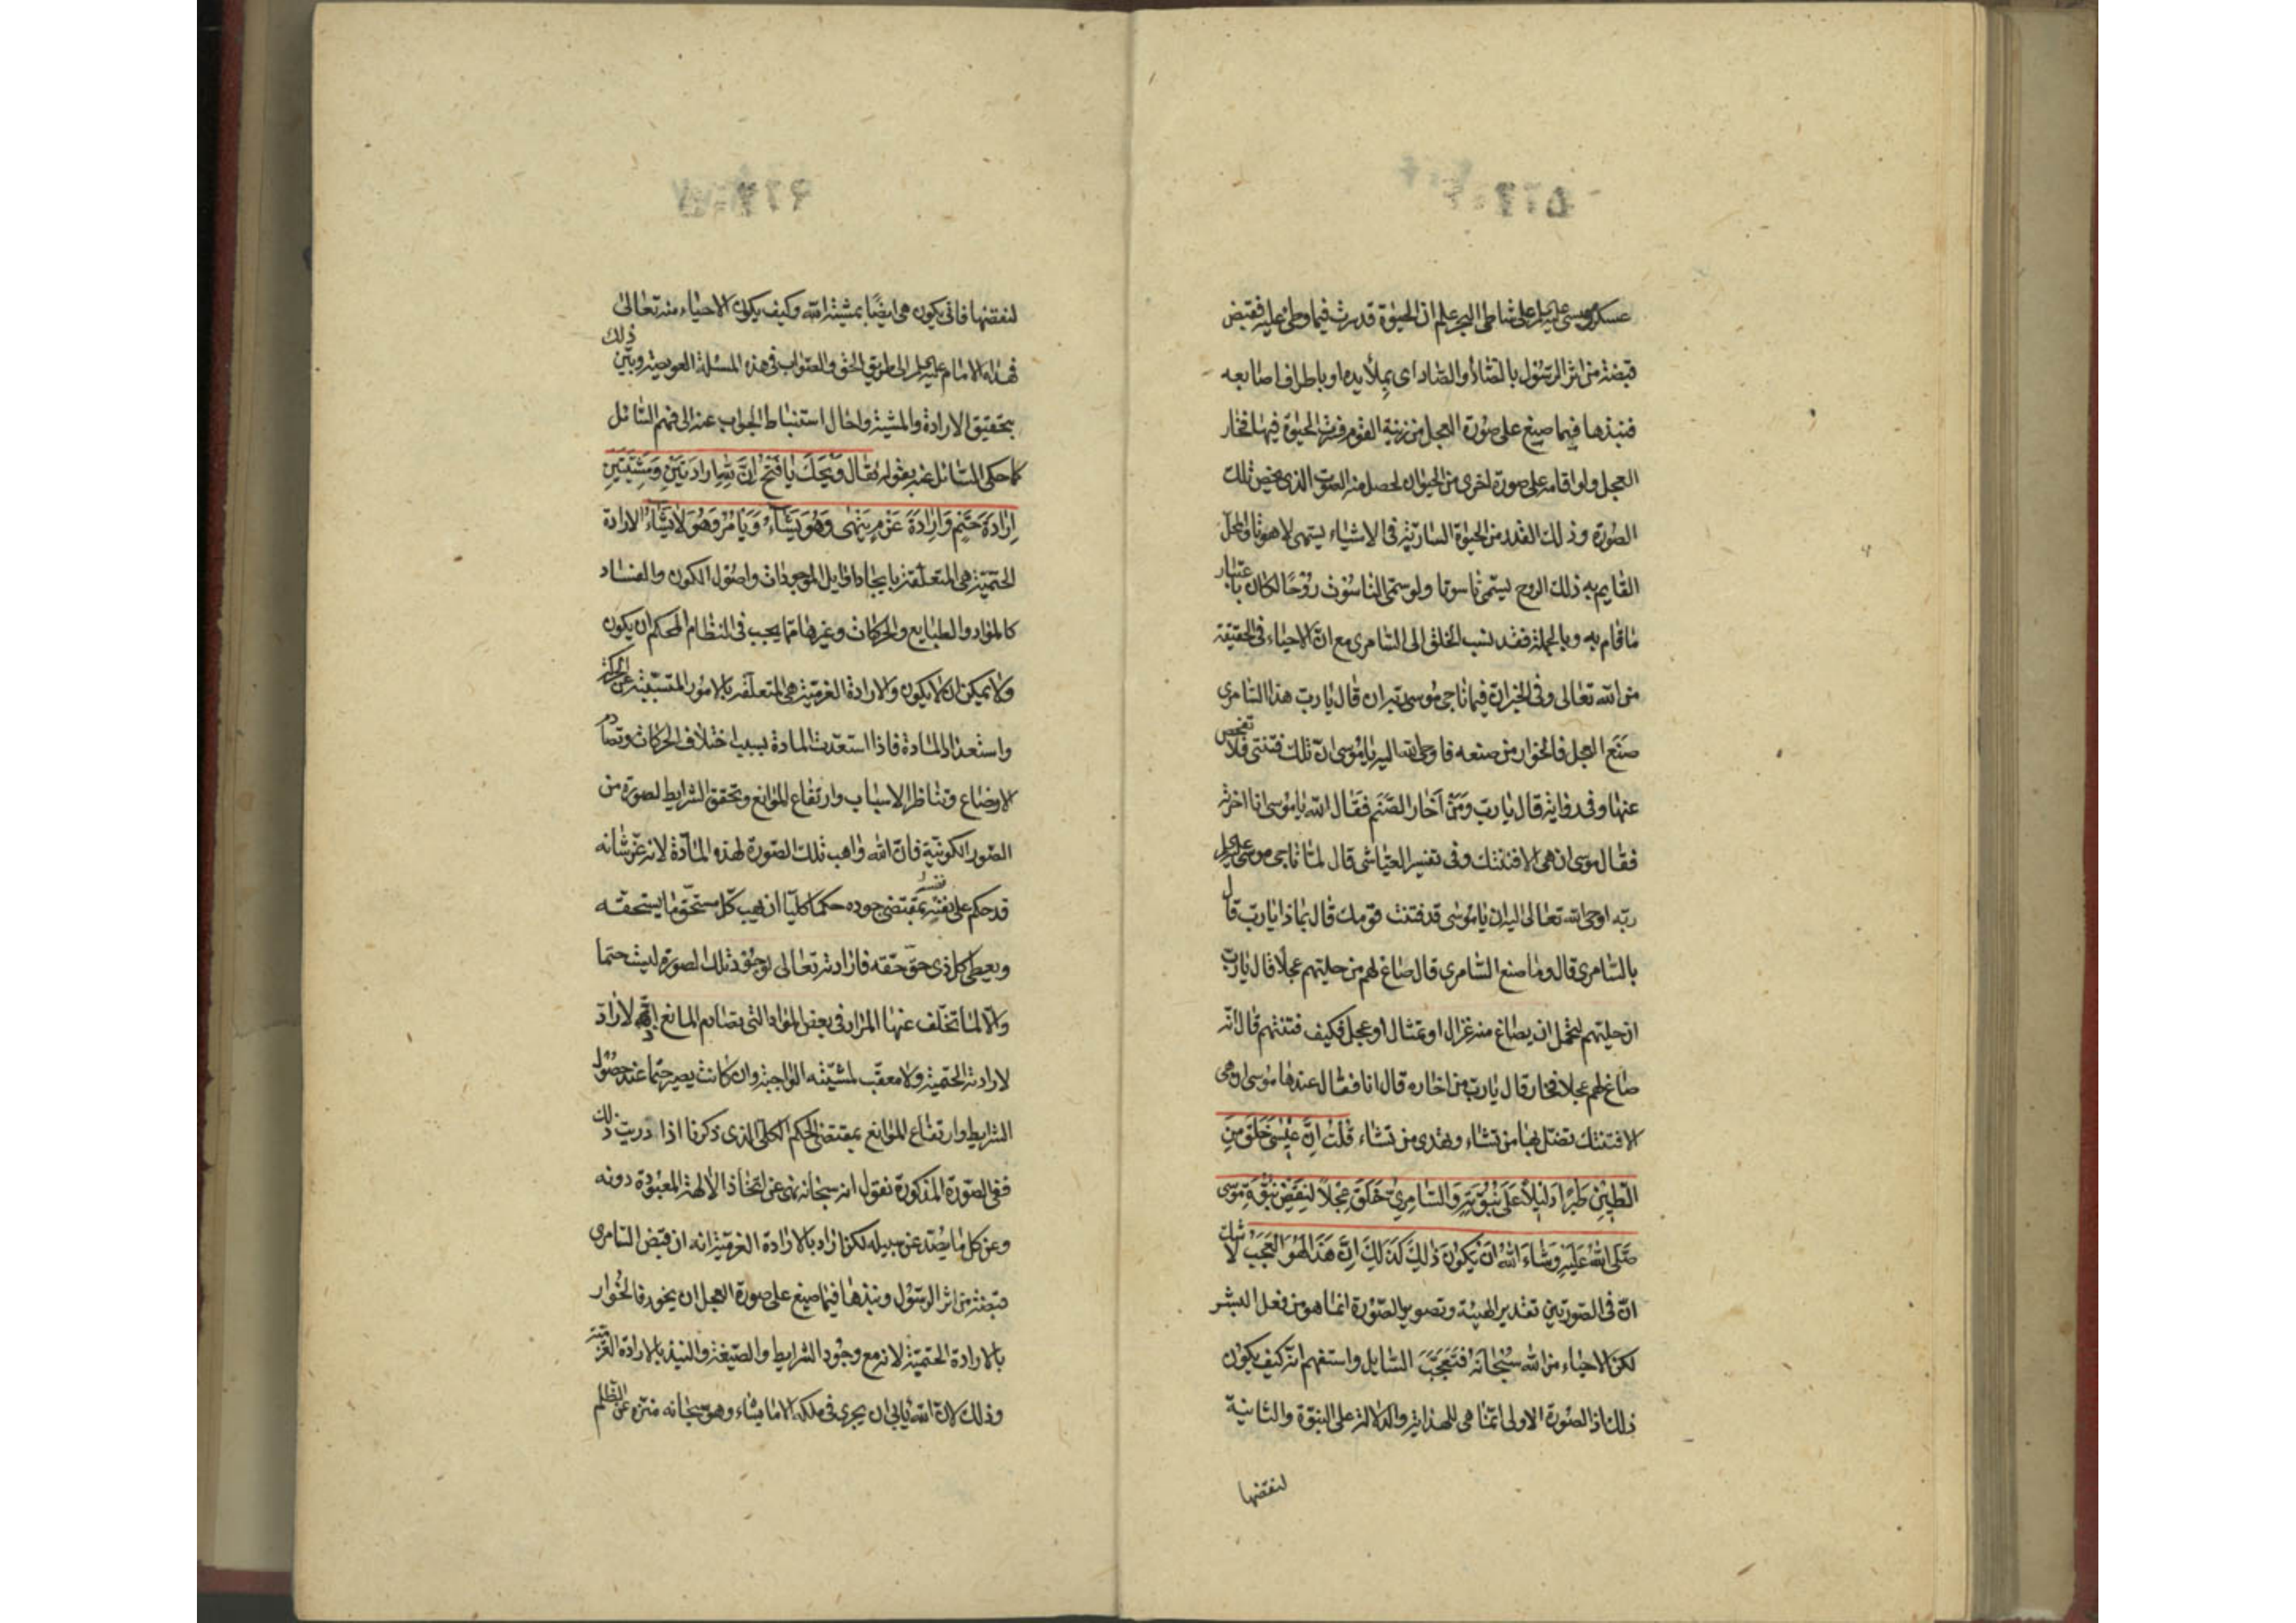 عسكر موسى عليه السلم على شاطى البحر علم ان الحيوة قد سرت فيما وطى عليه فقبض
قبضة من اثر الرسول بالضاد والصاد اى بملأ يده او باطراف اصابعه
فنبذها فيما صيغ على صورة العجل من زينة القوم فسرت الحيوة فيها فخار
العجل ولو اقامه على صورة اخرى من الحيوان لحصل منه الصوت الذى يخص تلك
الصورة وذلك القدر من الحيوة السارية فى الاشياء يسمى لاهوتا والمحل
القايم به ذلك الروح يسمى ناسوتا ولو سمى الناسوت روحا لكان باعتبار
ما قام به وبالجملة فقد نسب الخلق الى السامرى مع ان الاحياء فى الحقيقة
من الله تعالى وفى الخبر ان فيما ناجى موسى ربه ان قال يا رب هذا السامرى
صنع العجل فالخوار من صنعه فاوحى الله اليه يا موسى ان تلك فتنتى فلا تفحص
عنها وفى رواية قال يا رب ومن اخار الصنم فقال الله يا موسى انا اخرته
فقال موسى ان هى الا فتنتك وفى تفسير العياشى قال لما ناجى موسى عليه السلم
ربه اوحى الله تعالى اليه ان يا موسى قد فتنت قومك قال بماذا يا رب قال
بالسامرى قال وما صنع السامرى قال صاغ لهم من حليتهم عجلا قال يا رب
ان حليتهم لتحمل ان يصاغ منه غزال او تمثال او عجل فكيف فتنتهم قال انه
صاغ لهم عجلا فخار قال يا رب من اخاره قال انا فقال عندها موسى ان هى
الا فتنتك تضل بها من تشاء وتهدى من تشاء قلت اِنَّ عيسى خَلَقَ مِنَ
الطّينِ طَيْرًا دَليلاً عَلى نُبُوَّتِهِ وَالسّامِرِىَّ خَلَقَ عِجْلاً لِنَقْضِ نُبُوَّةِ مُوسى
صَلَّى اللّهُ عَلَيْهِ وَشاءَ اللّهُ اَنْ يَكُونَ ذلِكَ كَذلِكَ اِنَّ هذا لَهُوَ الْعَجَبُ لا شك
ان فى الصورتين تقدير الهيئة وتصوير الصورة انما هو من فعل البشر
لكن الاحياء من الله سبحانه فتعجب السايل واستفهم انه كيف يكون
ذلك اذ الصورة الاولى انما هى للهداية والدلالة على النبوة والثانية
لنقضها
لنقضها فانى يكون هى ايضًا بمشية الله وكيف يكون الاحياء منه تعالى
فهداه الامام عليه السلم الى طريق الحق والصواب فى هذه المسئلة العويصة وبين ذلك
بتحقيق الارادة والمشية واحال استنباط الجواب عنه الى فهم السائل
كما حكى السائل عنه بقوله فَقالَ وَيْحَكَ يا فَتْحُ اِنَّ لِلّهِ اِرادَتَيْنِ وَمَشِيَّتَيْنِ
اِرادَةَ حَتْمٍ وَاِرادَةَ عَزْمٍ يَنْهى وَهُوَ يَشاءُ وَيَأمُرُ وَهُوَ لا يَشاءُ الارادة
الحتمية هى المتعلقة بايجاد اوايل الموجودات واصول الكون والفساد
كالمواد والطبايع والحركات وغيرها مما يجب فى النظام المحكم ان يكون
ولا يمكن ان لا يكون والارادة العزمية هى المتعلقه بالامور المتسببة عن الحركة
واستعداد المادة فاذا استعدت المادة بسبب اختلاف الحركات وتصادم
الاوضاع وتناظر الاسباب وارتفاع الموانع وتحقق الشرايط لصورة من
الصور الكونية فان الله واهب تلك الصورة لهذه المادة لانه عز شانه
قد حكم على نفسه بمقتضى جوده حكما كليّا ان يهب كل مستحق ما يستحقه
ويعطى كل ذى حق حقه فارادته تعالى لوجود تلك الصورة ليست حتما
والا لما تخلف عنها المراد فى بعض المواد التى يصادم المانع اذ لا راد
لارادته الحتمية ولا معقب لمشيته الواجبة وان كانت يصير حتما عند حصول
الشرايط وارتفاع الموانع بمقتضى الحكم الكلى الذى ذكرنا اذا دريت ذلك
ففى الصورة المذكورة نقول انه سبحانه نهى عن اتخاذ الالهة المعبودة دونه
وعن كل ما يصد عن سبيله لكن اراد بالارادة العزمية انه ان قبض السامرى
قبضة من اثر الرسول ونبذها فيما صيغ على صورة العجل ان يخور فالخوار
بالارادة الحتمية لانه مع وجود الشرايط والصيغة والنبذ بالارادة العزمية
وذلك لان الله يابى ان يجرى فى ملكه الا ما يشاء وهو سبحانه منزه عن الظلم